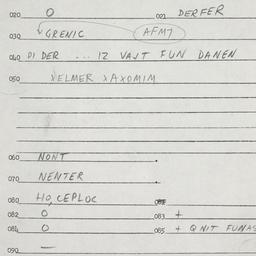 020 O 021 DERFER
030 GRENIC AFM7
040 DI DER ... 12 VAJT FUN DANEN
050 XELMER XAXOMIM
060 NONT
070 NENTER
080 HO, CEPLOC
082 O 083 +
084 O 085 + QNIT FUNAS
090 —